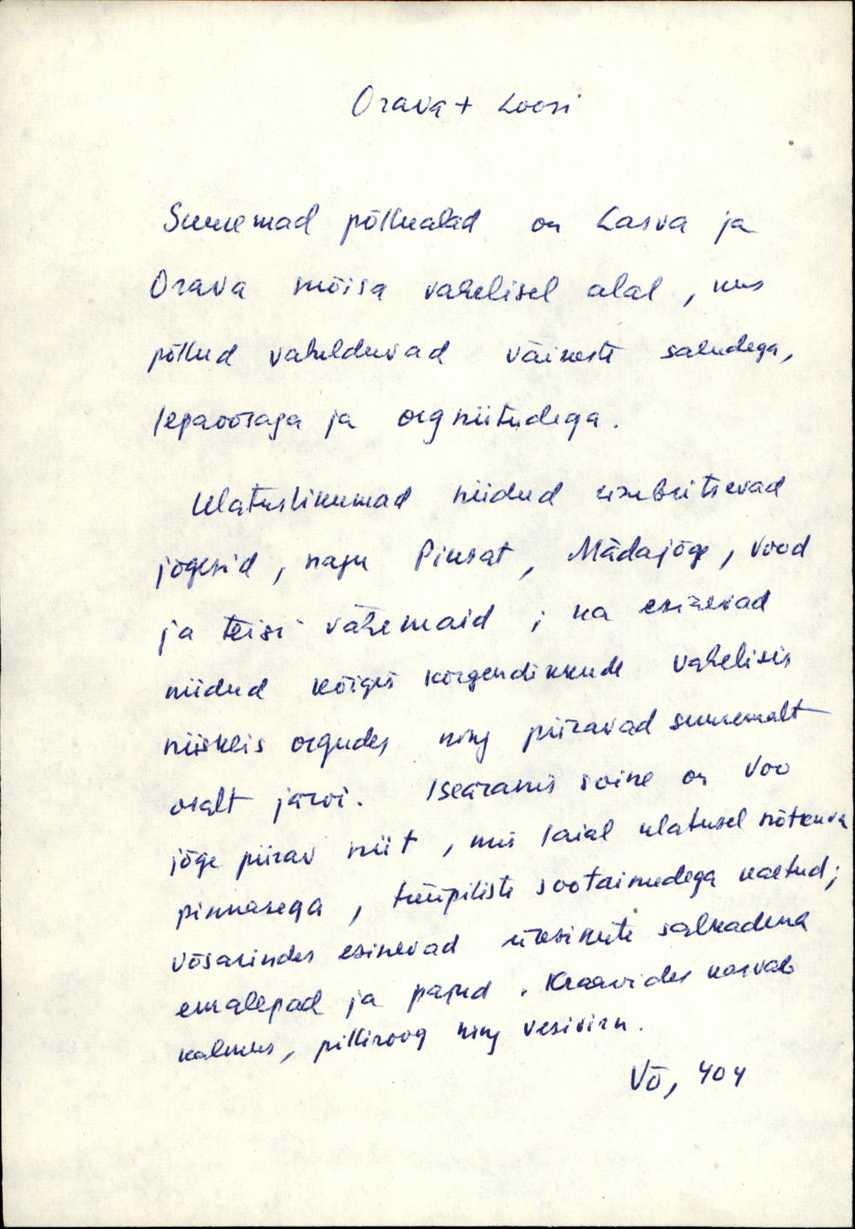 Orava + Loosi
Suuremad põllualad on Lasva ja
Orava mõisa vahelisel alal, kus
põllud vahelduvad väikeste saludega,
lepavõsaga ja orgniitudega.
Ulatuslikumad niidud ümbritsevad
jõgesid, nagu Piusat, Mädajõge, Vood
ja teisi vähemaid; ka esinevad
niidud kõigis kõrgendikkude vahelisis
niiskeis orgudes ning piiravad suuremalt
osalt järvi. Iseäranis soine on Voo
jõge piirav niit, mis laial ulatusel nõtkuva
pinnasega, tüüpiliste sootaimedega kaetud;
võsarindes esinevad üksikute salkadena
emalepad ja pajud. Kraavides kasvab
kalmus, pilliroog ning vesiviru.
Võ, 404